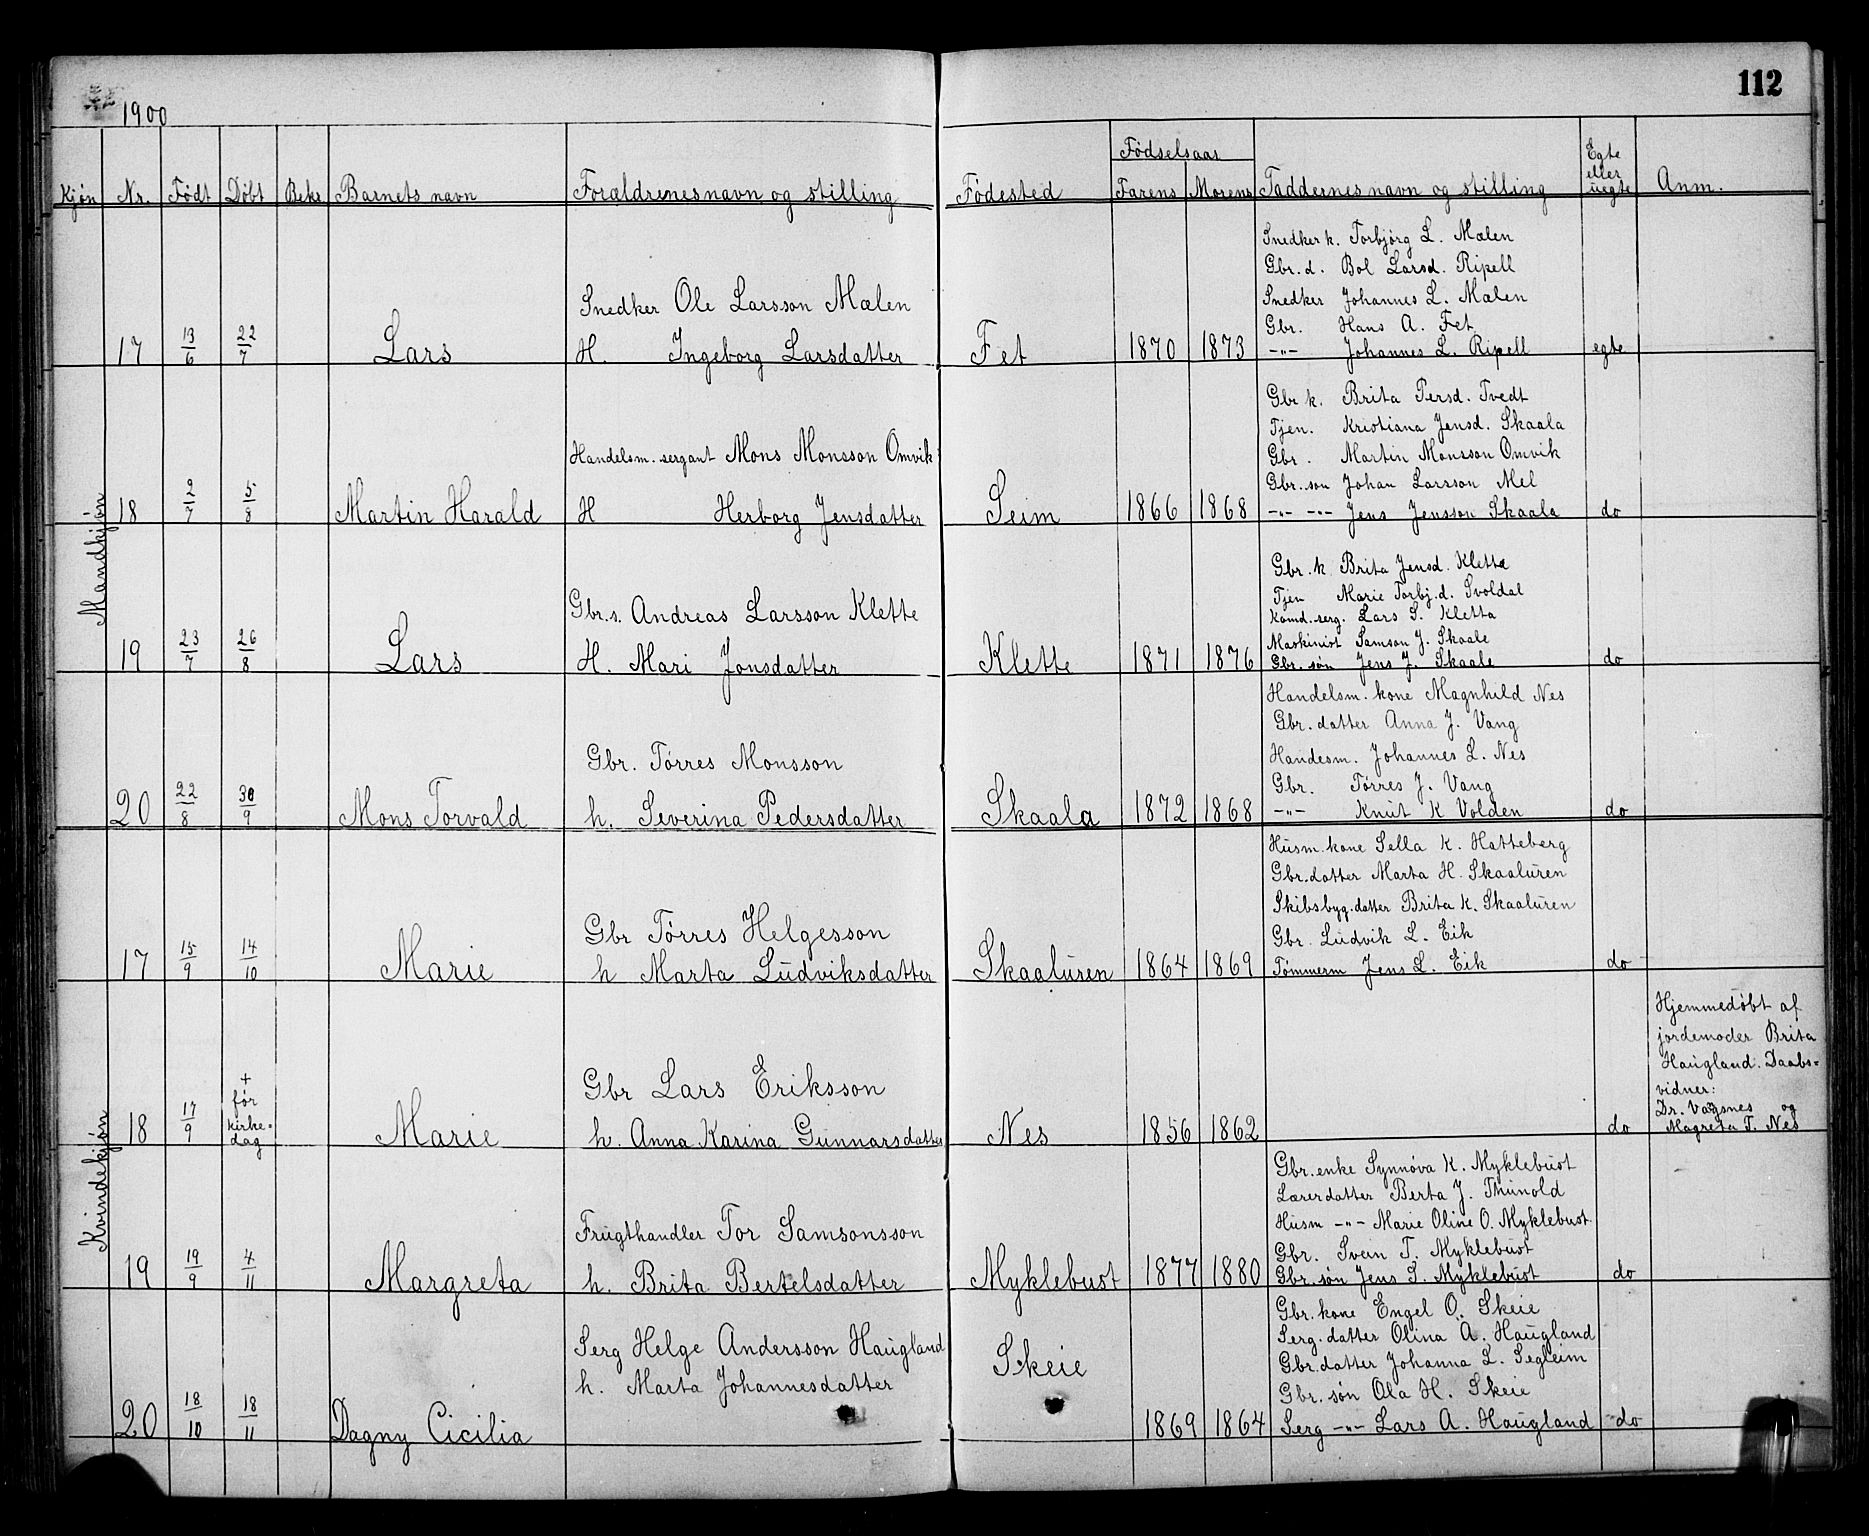 1900
112
Kjøn Nr. Født Døbt Beks Barnets navn Forældrenes navn og stilling Fødested Fødselsaar Farens Morens Faddernes navn og stilling Egte eller uegte Anm.
Mandkjøn
17 13/6 22/7 Lars
Snedker Ole Larsson Mælen
H. Ingeborg Larsdatter
Fet 1870 1873
Snedker k. Torbjørg L. Mælen
Gbr. d. Bol Larsd. Ripell
Snedker Johannes L. Mælen
Gbr. Hans A. Fet
-"- Johannes L. Ripell
egte
18 2/7 5/8 Martin Harald
Handelsm. sergant Mons Monsson Omvik
H Herborg Jensdatter
Seim 1866 1868
Gbr k. Brita Persd. Tvedt
Tjen. Kristiana Jensd. Skaala
Gbr. Martin Monsson Omvik
Gbr. søn Johan Larsson Mel
-"- -"- Jens Jensson Skaala
do
19 23/7 26/8 Lars
Gbr. s. Andreas Larsson Klette
H. Mari Jonsdatter
Klette 1871 1876
Gbr. k Brita Jensd. Klette
Tjen Marie Torbj. d. Svoldal
Komd. serg. Lars S. Kletta
Maskinist Samson J. Skaale
Gbr. søn Jens J. Skaale
do
20 22/8 30/9 Mons Torvald
Gbr. Tørres Monsson
h. Severina Pedersdatter
Skaala 1872 1868
Handelsm. kone Magnhild Nes
Gbr. datter Anna J. Vang
Handesm. Johannes L. Nes
Gbr. Tørres J. Vang
-"- Knut K Volden
do
Kvindekjøn
17 15/9 14/10 Marie
Gbr Tørres Helgesson
h Marta Ludviksdatter
Skaaluren 1864 1869
Husm. kone Sella K. Hatteberg
Gbr. datter Marta H. Skaaluren
Skibsbyg. datter Brita K. Skaaluren
Gbr. Ludvik L. Eik
Tømmerm Jens L. Eik
do
18 17/9 + før kirke=dag Marie
Gbr Lars Eriksson
h. Anna Karina Gunnarsdatter
Nes 1856 1862
do
Hjemmedøbt af
jordemoder Brita
Haugland. Daabs=
vidner:
Dr. Vaagsnes og
Magreta T. Nes
19 19/9 4/11 Margreta
Frugthandler Tor Samsonsson
h. Brita Bertelsdatter
Myklebust 1877 1880
Gbr. enke Synnøva K. Myklebust
Lærerdatter Berta J. Thunold
Husm -"- Marie Oline O. Myklebust
Gbr. Svein T. Myklebust
Gbr. søn Jens S. Myklebust
do
20 18/10 18/11 Dagny Cicilia
Serg Helge Andersson Haugland
h. Marta Johannesdatter
Skeie 1869 1864
Gbr. kone Engel O. Skeie
Serg. datter Olina A. Haugland
Gbr. datter Johanna L. Segleim
Gbr. søn Ola H. Skeie
Serg -"- Lars A. Haugland
do